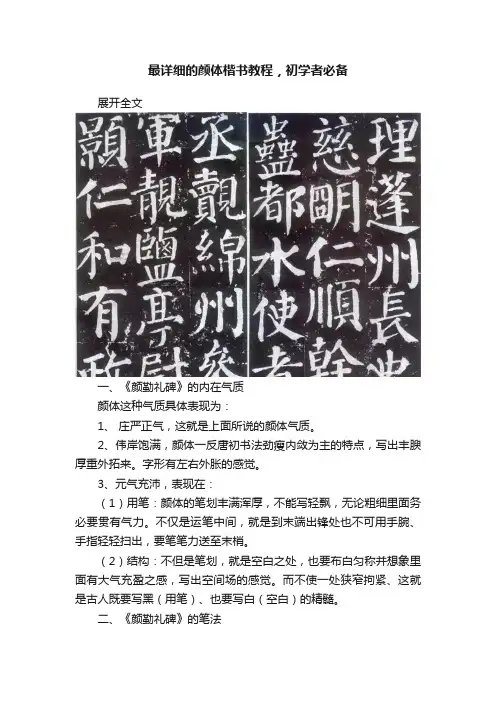 最详细的颜体楷书教程，初学者必备
展开全文
丞覿綿州參
軍靚鹽亭尉
顥仁和有政
理蓬州長史
慈朙仁順幹
蠱都水使者
一、《颜勤礼碑》的内在气质
颜体这种气质具体表现为：
1、 庄严正气，这就是上面所说的颜体气质。
2、伟岸饱满，颜体一反唐初书法劲瘦内敛为主的特点，写出丰腴
厚重外拓来。字形有左右外胀的感觉。
3、元气充沛，表现在：
（1）用笔：颜体的笔划丰满浑厚，不能写轻飘，无论粗细里面务
必要贯有气力。不仅是运笔中间，就是到末端出锋处也不可用手腕、
手指轻轻扫出，要笔笔力送至末梢。
（2）结构：不但是笔划，就是空白之处，也要布白匀称并想象里
面有大气充盈之感，写出空间场的感觉。而不使一处狭窄拘紧、这就
是古人既要写黑（用笔）、也要写白（空白）的精髓。
二、《颜勤礼碑》的笔法